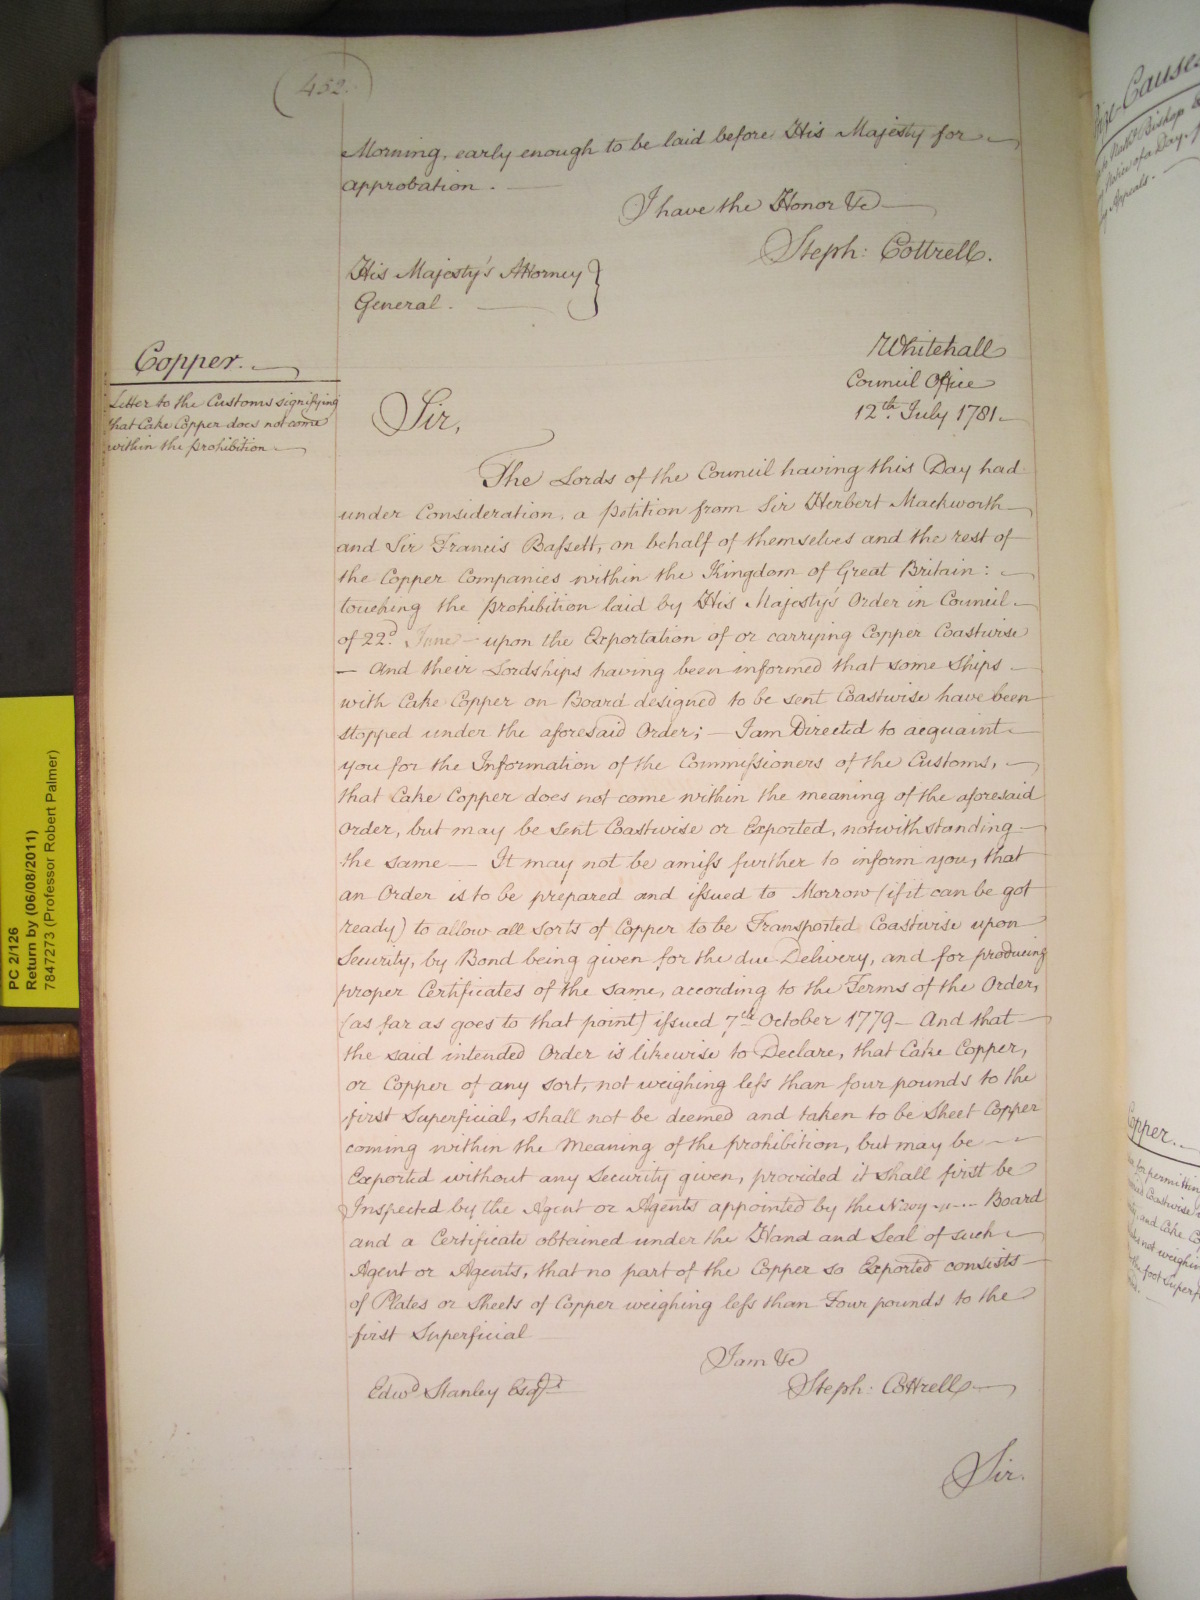 452.
Morning, early enough to be laid before His Majesty for
approbation.
I have the Honor &c
Steph: Cottrell.
His Majesty's Attorney
General.
Whitehall
Council Office
12th July 1781.
Copper.
Letter to the Customs signifying
that Cake Copper does not come
within the prohibition
Sir,
The Lords of the Council having this Day had
under Consideration, a petition from Sir Herbert Mackworth
and Sir Francis Bassett, on behalf of themselves and the rest of
the Copper Companies within the Kingdom of Great Britain:
touching the prohibition laid by His Majesty's Order in Council
of 22d. June – upon the Exportation of or carrying Copper Coastwise
– And their Lordships having been informed that some Ships
with Cake Copper on Board designed to be sent Coastwise have been
stopped under the aforesaid Order; – I am Directed to acquaint
you for the Information of the Commissioners of the Customs,
that Cake Copper does not come within the meaning of the aforesaid
Order, but may be sent Coastwise or Exported, notwithstanding
the same — It may not be amiss further to inform you, that
an Order is to be prepared and issued to Morrow (if it can be got
ready) to allow all sorts of Copper to be Transported Coastwise upon
Security, by Bond being given for the due Delivery, and for producing
proper Certificates of the same, according to the Terms of the Order,
(as far as goes to that point) issued 7th October 1779 – And that
the said intended Order is likewise to Declare, that Cake Copper,
or Copper of any sort, not weighing less than four pounds to the
first Superficial, shall not be deemed and taken to be Sheet Copper
coming within the Meaning of the prohibition, but may be
Exported without any Security given, provided it shall first be
Inspected by the Agent or Agents appointed by the Navy Board
and a Certificate obtained under the Hand and Seal of such
Agent or Agents, that no part of the Copper so Exported consists
of Plates or Sheets of Copper weighing less than Four pounds to the
first Superficial
I am &c
Edwd Stanley Esqr.
Steph: Cottrell
Sir.
PC 2/126
Return by (06/08/2011)
7847273 (Professor Robert Palmer)
Causes
Bishop
Notice of a Day
Appeals.
Copper.
for permitting
Coastwise
and Cake
not weighing
foot superf